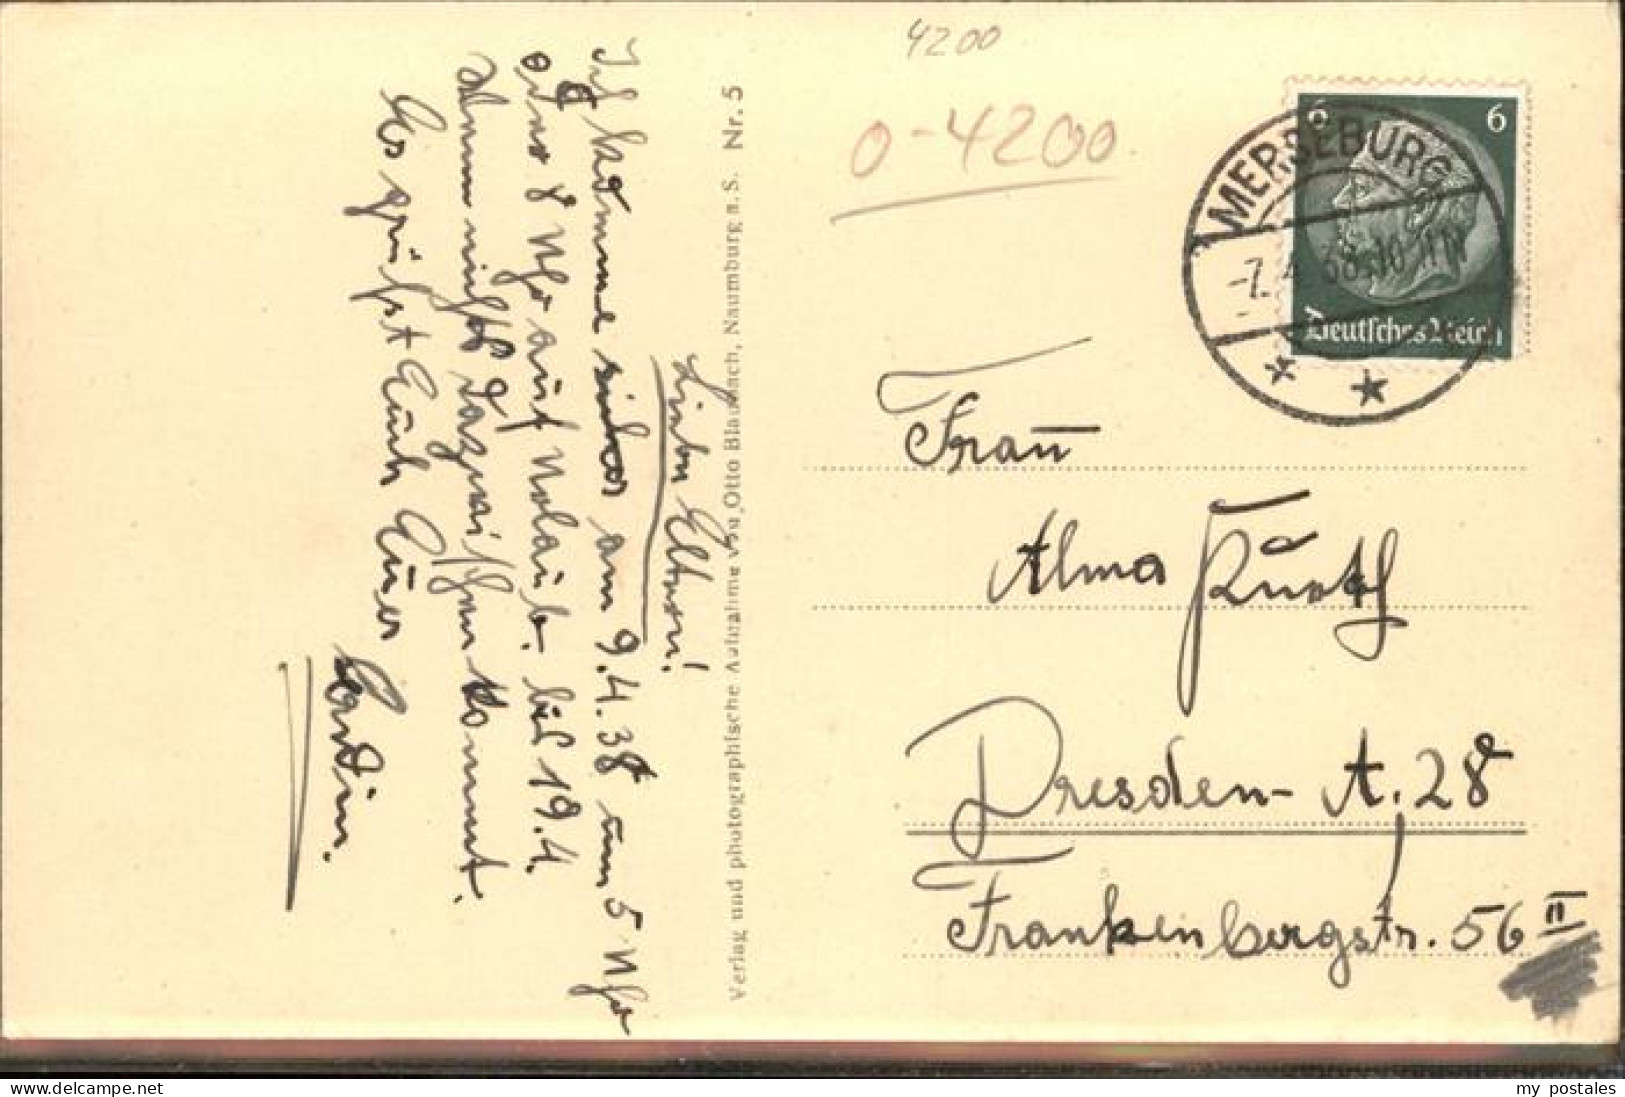 4200
0-4200
6
6
Deutsches Reich
MERSEBURG
-7.4.38.10-11V
Liebe Eltern!
Ich komme am 9.4.38 um 5 Uhr
oder 8 Uhr auf Urlaub bis 19.4.
wenn nichts dazwischen kommt.
Es grüßt Euch Euer
Verlag und photographische Aufnahme von Otto Blaubach, Naumburg a. S. Nr. 5
Frau
Alma
Dresden- A. 28
Frankenbergstr. 56 II
my postales